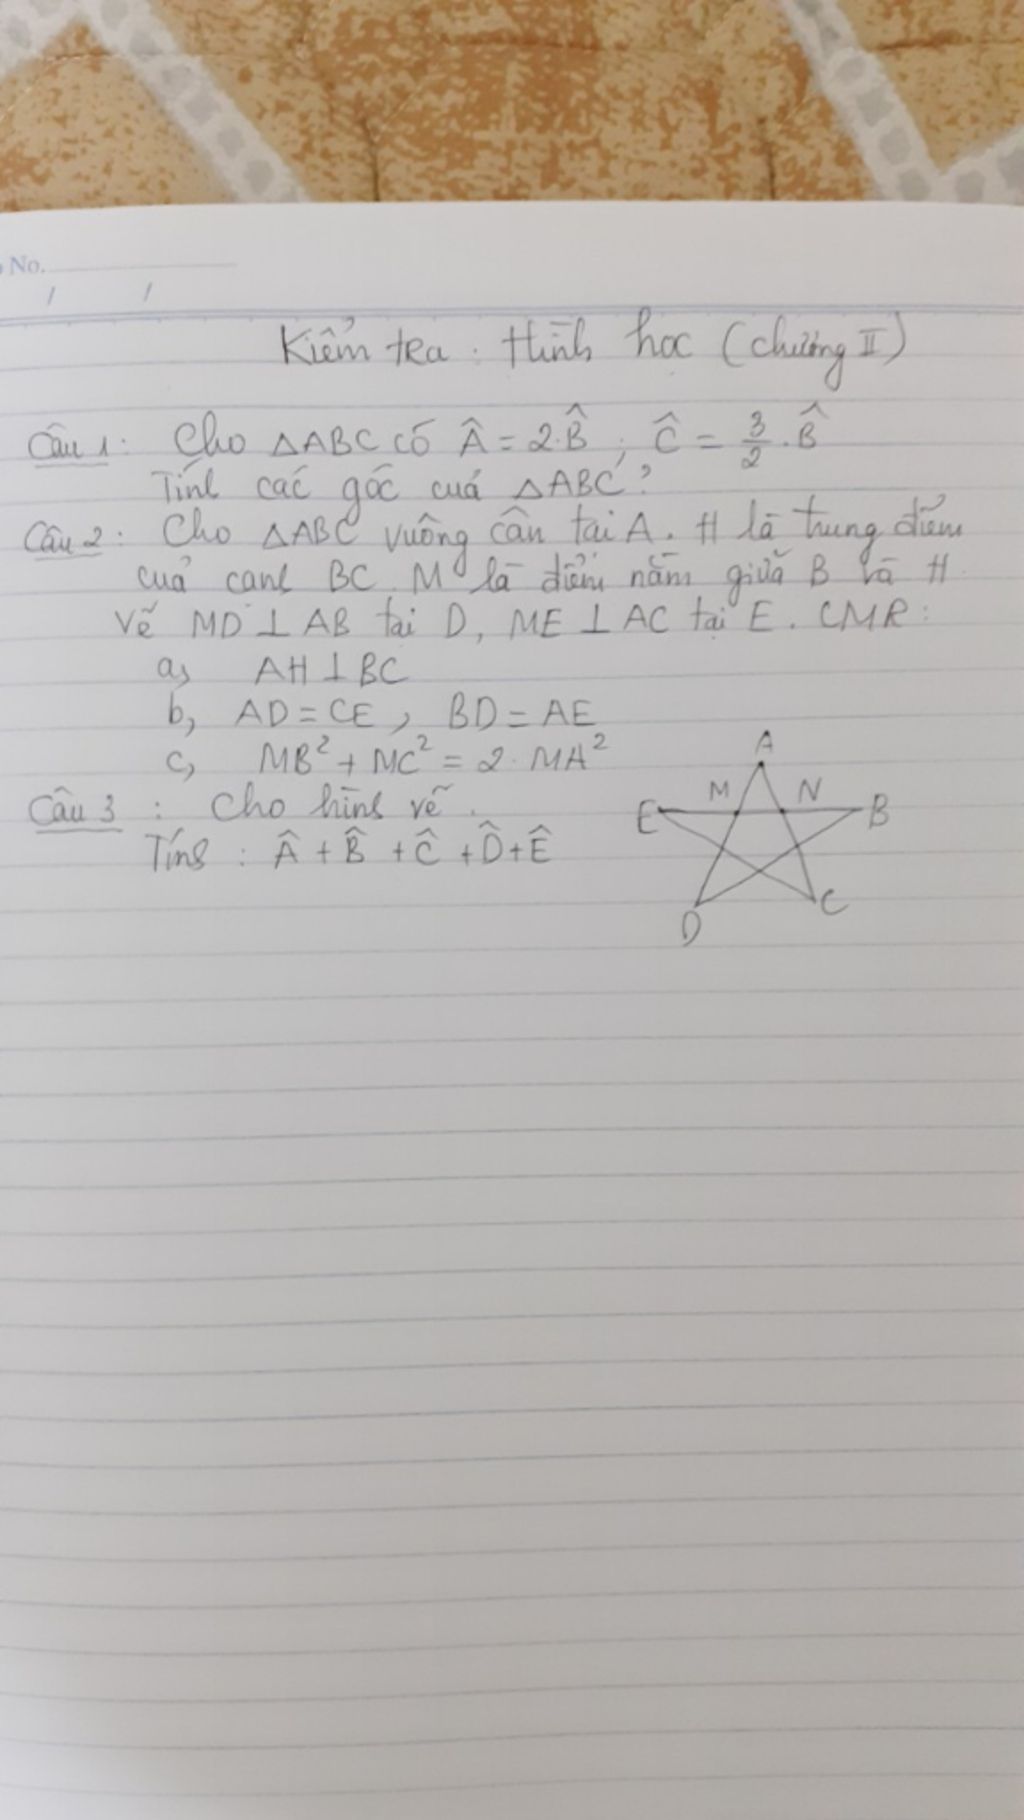 No.
/ /
Kiểm tra : Hình học (chương II)
Câu 1: Cho ΔABC có Â = 2.B̂ ; Ĉ = 3/2 . B̂
Tính các góc cuả ΔABC ?
Câu 2 : Cho ΔABC vuông cân tại A. H là trung điểm
cuả cạnh BC. M là điểm nằm giữa B và H.
Vẽ MD ⊥ AB tại D, ME ⊥ AC tại E. CMR :
a, AH ⊥ BC
b, AD = CE , BD = AE
c, MB² + MC² = 2. MA²
Câu 3 : Cho hình vẽ.
Tính : Â + B̂ + Ĉ + D̂ + Ê
A
M N
E B
C
D